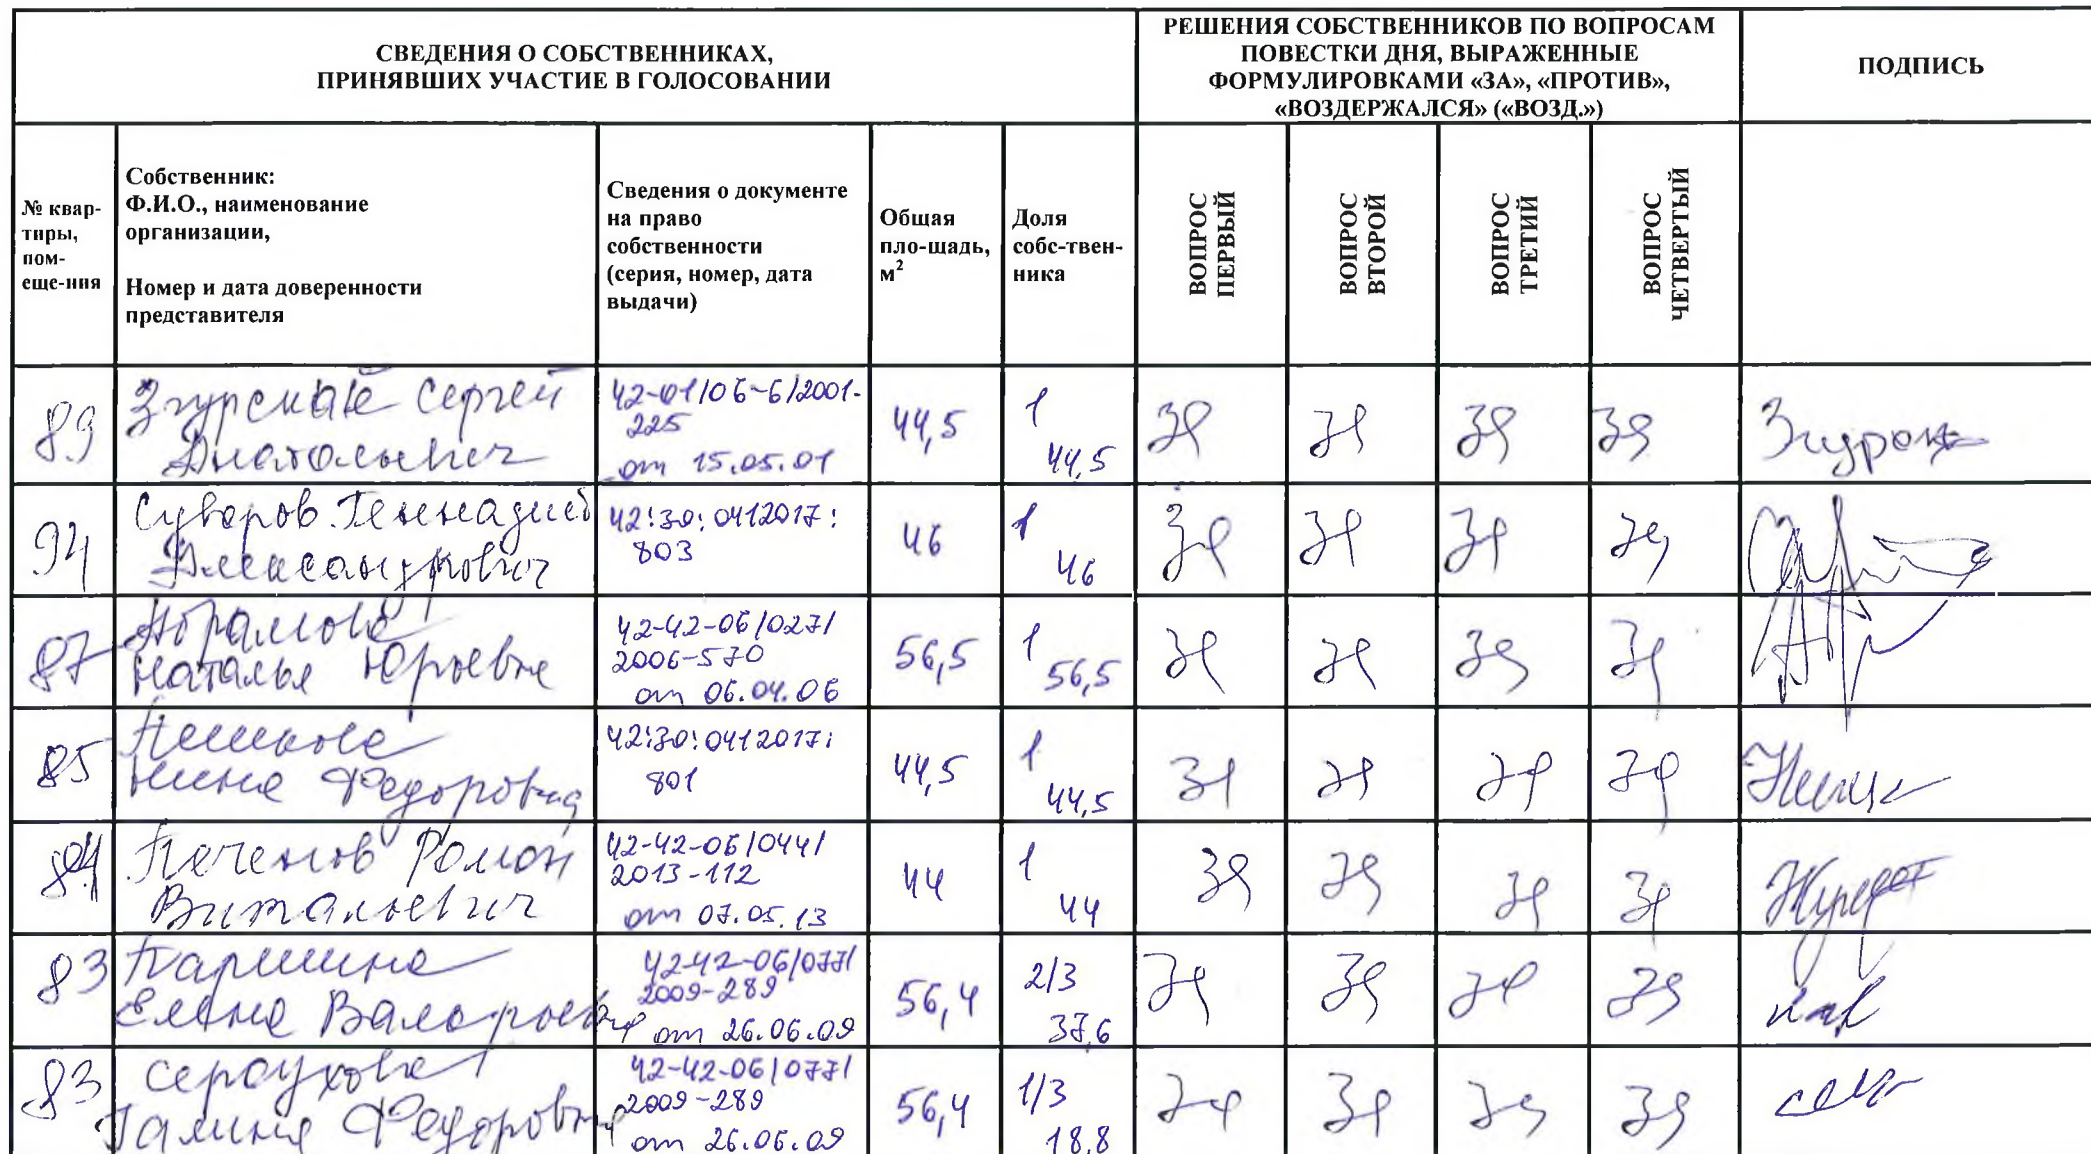 СВЕДЕНИЯ О СОБСТВЕННИКАХ,
ПРИНЯВШИХ УЧАСТИЕ В ГОЛОСОВАНИИ
РЕШЕНИЯ СОБСТВЕННИКОВ ПО ВОПРОСАМ
ПОВЕСТКИ ДНЯ, ВЫРАЖЕННЫЕ
ФОРМУЛИРОВКАМИ «ЗА», «ПРОТИВ»,
«ВОЗДЕРЖАЛСЯ» («ВОЗД.»)
ПОДПИСЬ
№ квар-
тиры,
пом-
еще-ния
Собственник:
Ф.И.О., наименование
организации,
Номер и дата доверенности
представителя
Сведения о документе
на право
собственности
(серия, номер, дата
выдачи)
Общая
пло-щадь,
м²
Доля
собс-твен-
ника
ВОПРОС
ПЕРВЫЙ
ВОПРОС
ВТОРОЙ
ВОПРОС
ТРЕТИЙ
ВОПРОС
ЧЕТВЕРТЫЙ
89
Сергей
Анатольевич
42-01/06-6/2001-
225
от 15.05.01
44,5
1
44,5
За
За
За
За
94
Суворов Геннадий
Александрович
42:30:0412017:
803
46
1
46
За
За
За
За
87
Абрамова
Наталья Юрьевна
42-42-06/027/
2006-570
от 06.04.06
56,5
1
56,5
За
За
За
За
85
Нина Федоровна
42:30:0412017:
801
44,5
1
44,5
За
За
За
За
84
Роман
Витальевич
42-42-06/044/
2013-112
от 07.05.13
44
1
44
За
За
За
За
83
Паршина
Елена Валерьевна
42-42-06/077/
2009-289
от 26.06.09
56,4
2/3
37,6
За
За
За
За
83
Сероухова
Галина Федоровна
42-42-06/077/
2009-289
от 26.06.09
56,4
1/3
18,8
За
За
За
За